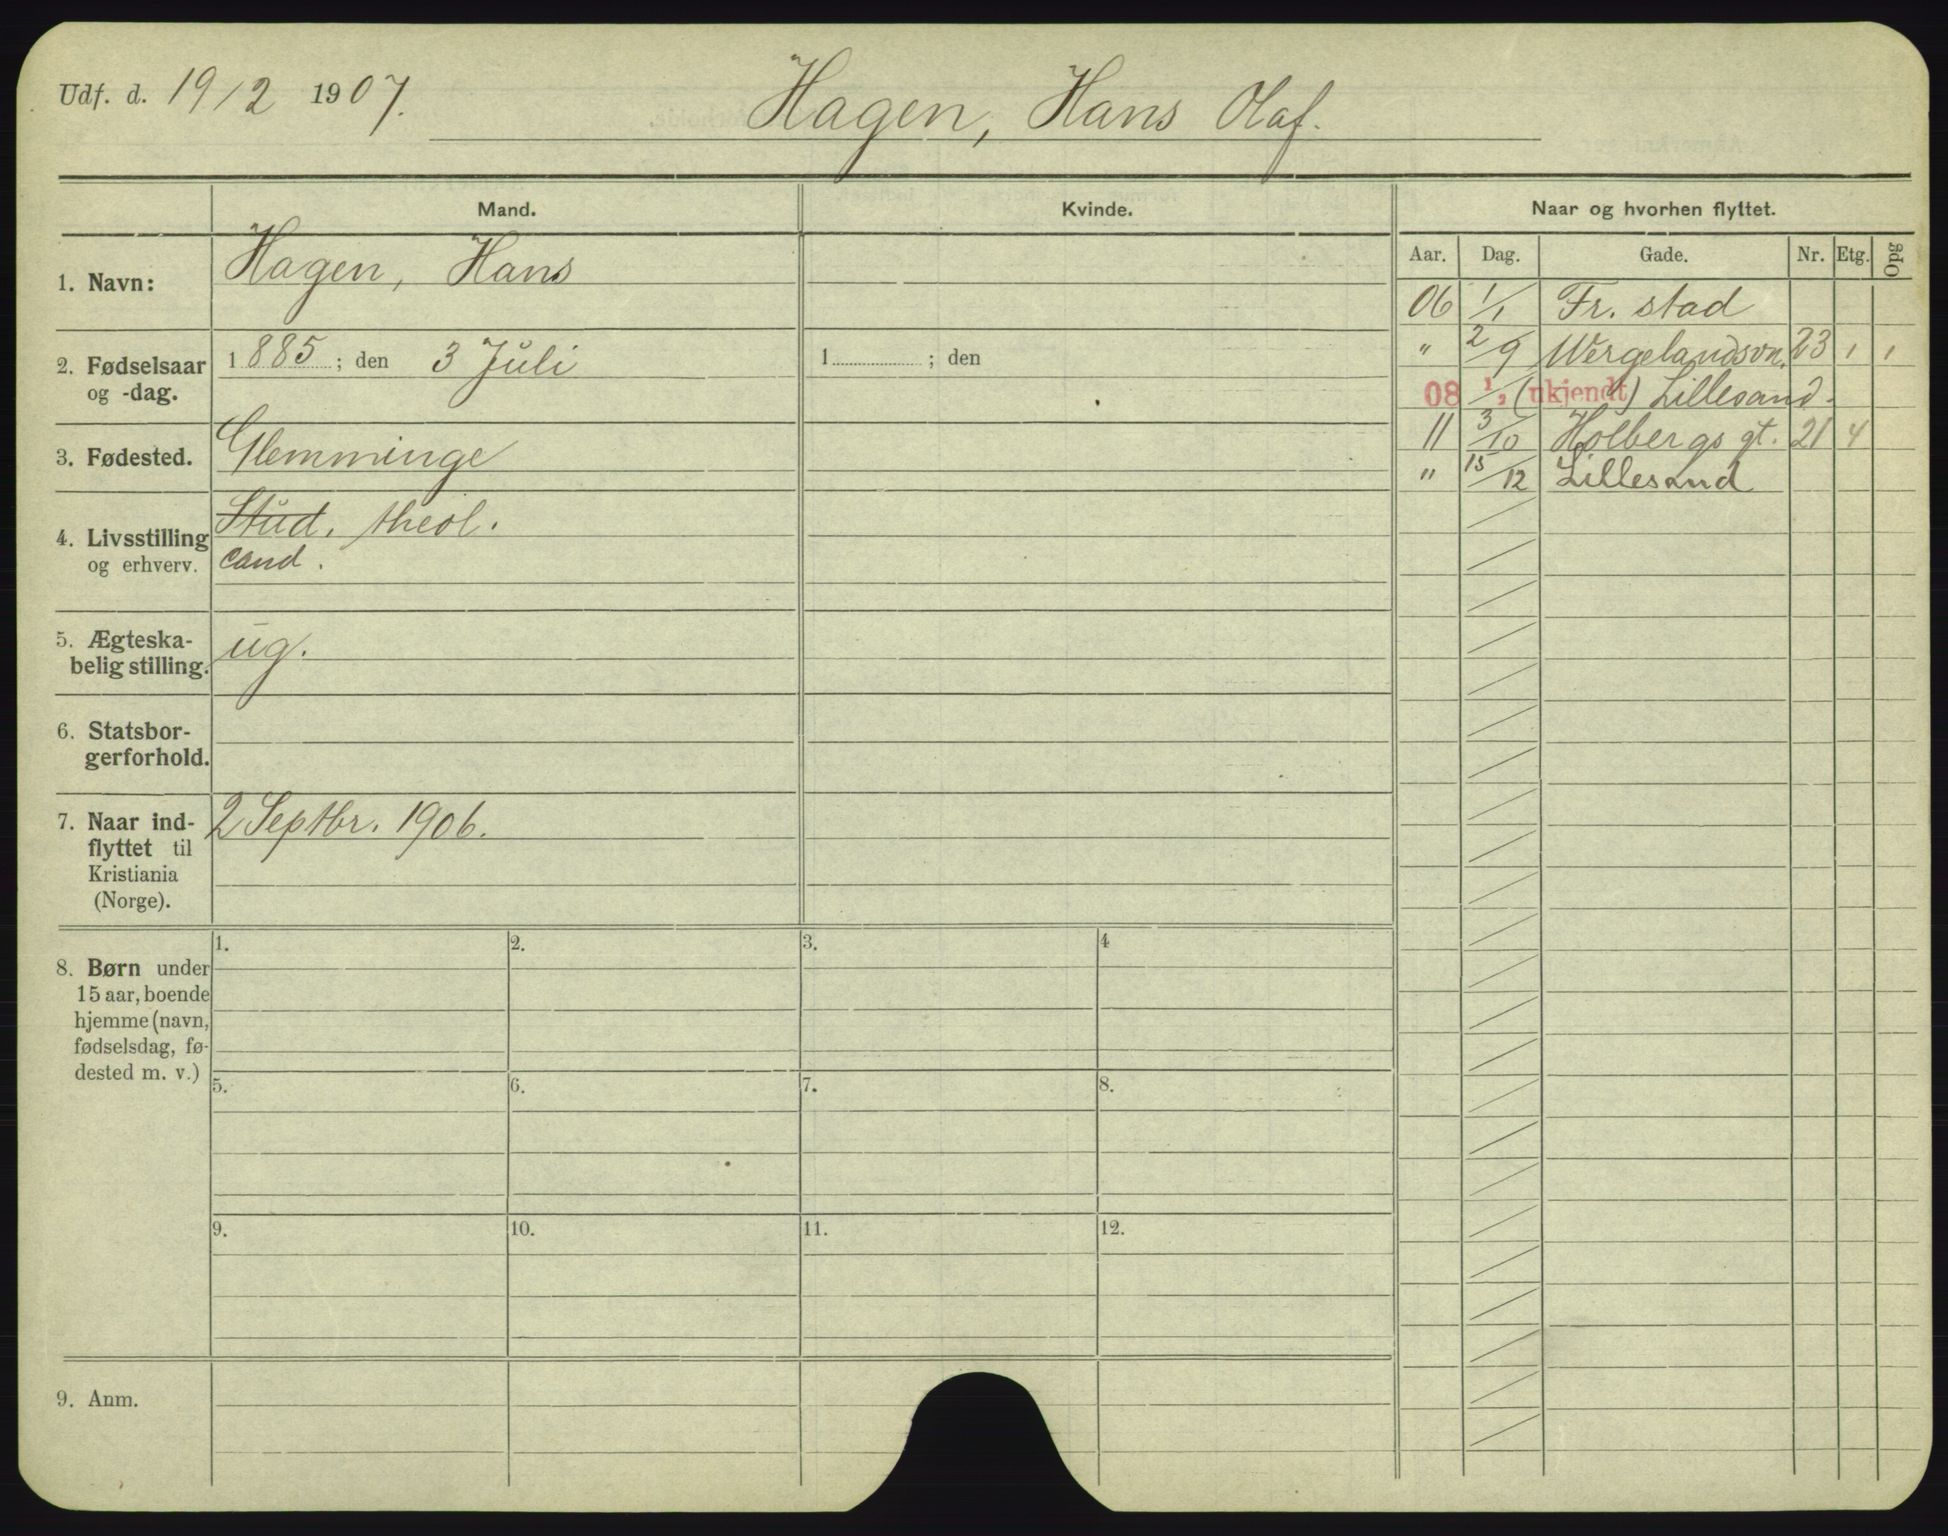 Udf. d. 19/2 1907.
Hagen, Hans Olaf.
Mand. Kvinde. Naar og hvorhen flyttet.
Aar. Dag. Gade. Nr. Etg. Opg
1. Navn: Hagen, Hans
2. Fødselsaar og -dag. 1885; den 3 Juli
1 ; den
3. Fødested. Glemminge
4. Livsstilling og erhverv. Stud. theol.
cand.
5. Ægteskabelig stilling. ug.
6. Statsborgerforhold.
7. Naar indflyttet til Kristiania (Norge). 2 Septbr. 1906.
06 1/1 Fr. stad
" 2/9 Wergelandsvn. 23 1 1
08 1/2 (ukjendt) Lillesand.
11 3/10 Holbergs gt. 21 4
" 15/12 Lillesand
8. Børn under
15 aar, boende
hjemme (navn,
fødselsdag, fø-
dested m. v.)
1. 2. 3. 4
5. 6. 7. 8.
9. 10. 11. 12.
9. Anm.